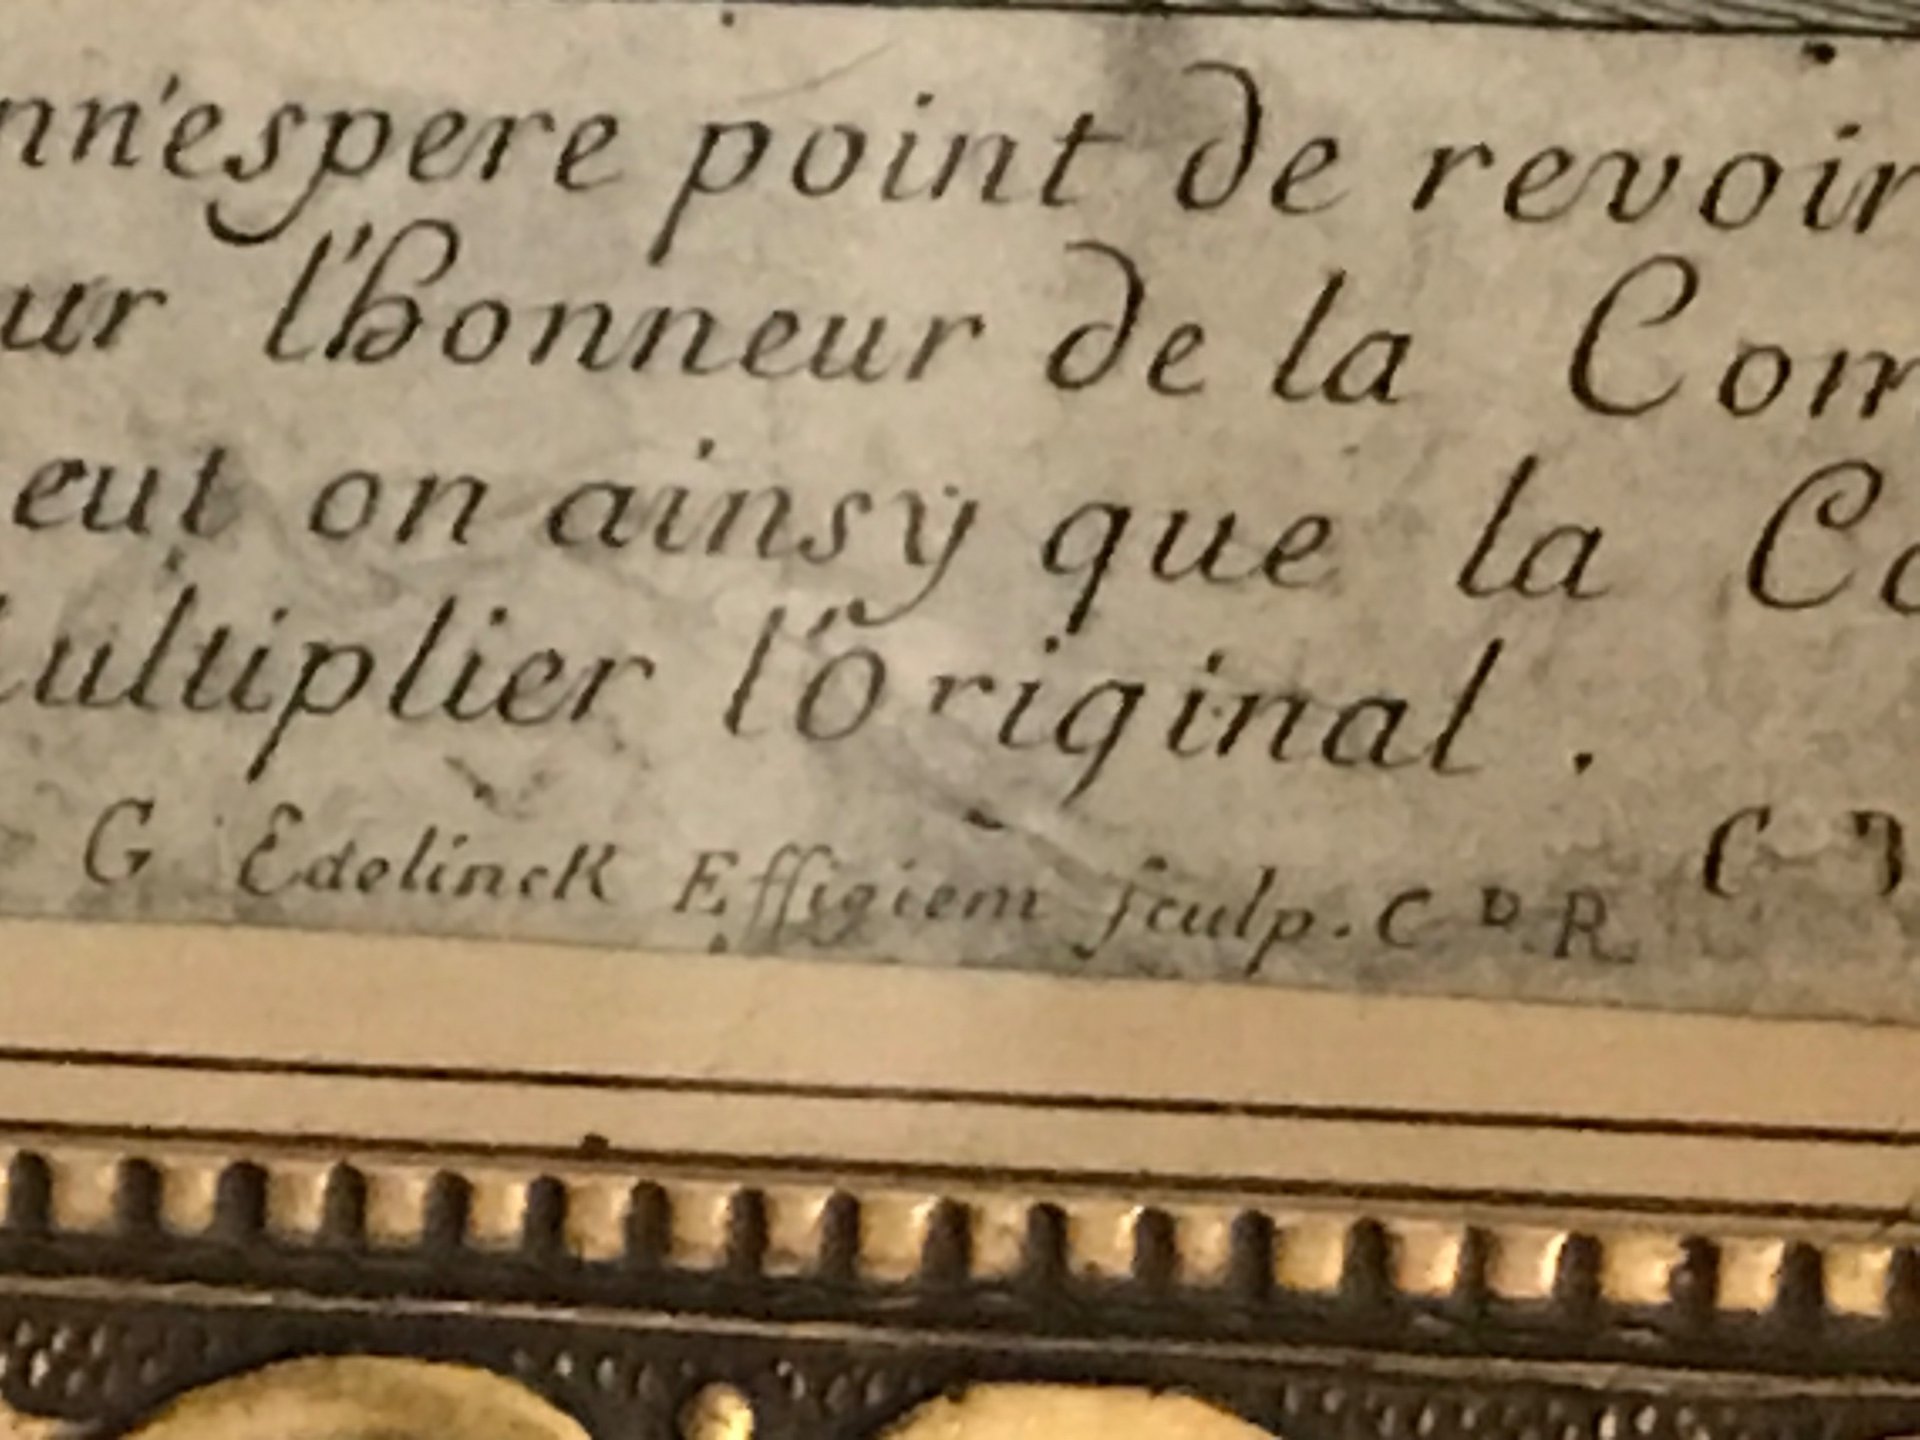 nn'espere point de revoir
ur l'honneur de la Com
eut on ainsy que la Co
ultiplier l'Original .
G Edelinck Effigiem sculp. C D R